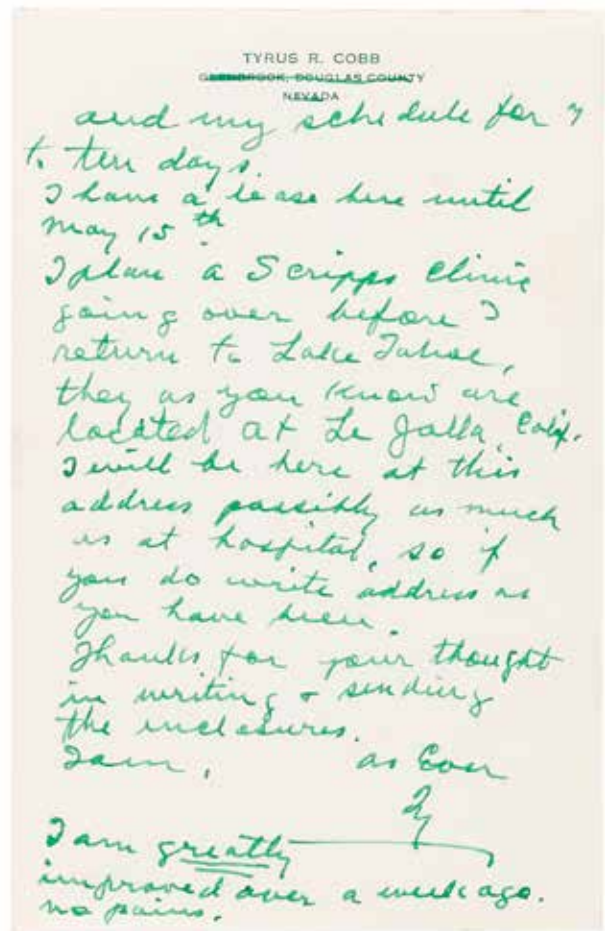 TYRUS R. COBB
GLENBROOK, DOUGLAS COUNTY
NEVADA
and my schedule for 7
to ten days.
I have a lease here until
May 15th.
I plan a Scripps Clinic
going over before I
return to Lake Tahoe,
they as you know are
located at Le Jolla, Calif.
I will be here at this
address possibly as much
as at hospital, so if
you do write address as
you have been.
Thanks for your thought
in writing & sending
the inclosures.
I am, as Ever
Ty
I am greatly
improved over a week ago.
no pains.